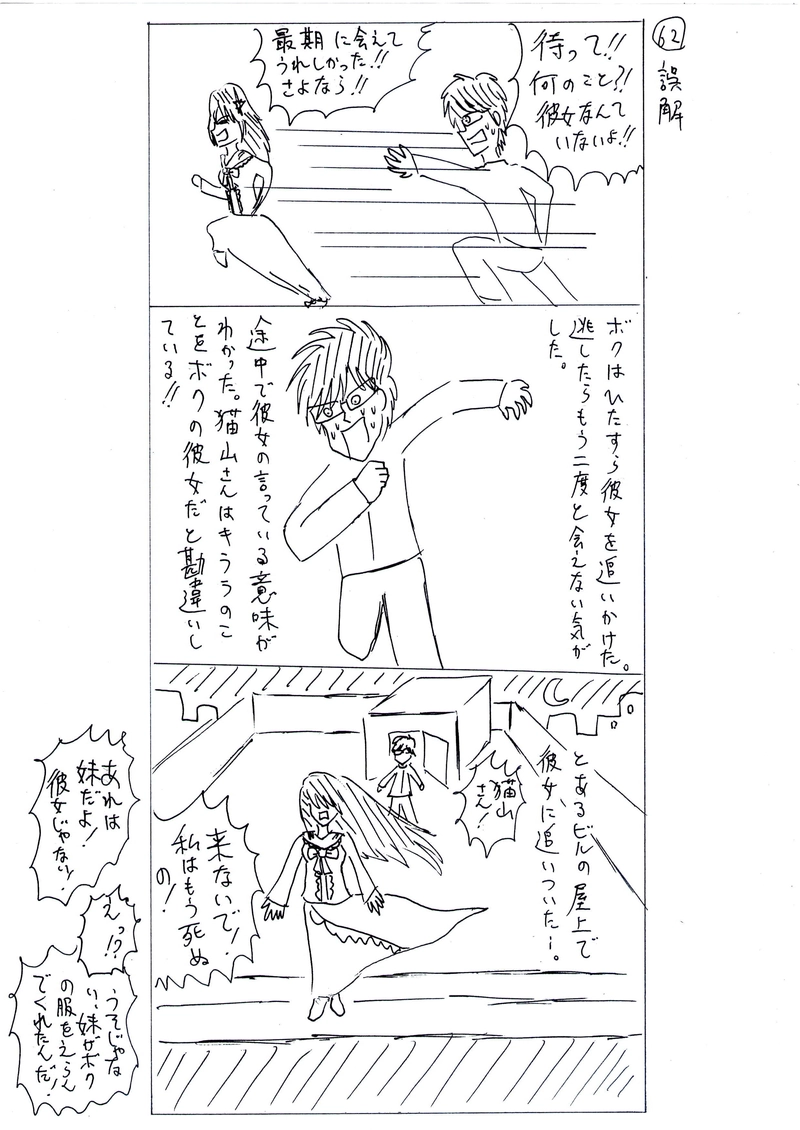 62
誤解
待って!!
何のこと?!
彼女なんて
いないよ!!
最期に会えて
うれしかった!!
さよなら!!
ボクはひたすら彼女を追いかけた。
逃したらもう二度と会えない気が
した。
途中で彼女の言っている意味が
わかった。猫山さんはキララのこ
とをボクの彼女だと勘違いし
ている!!
とあるビルの屋上で
彼女に追いついたー。
猫山
さん!
来ないで!
私はもう死ぬ
の!
あれは
妹だよ!
彼女じゃない!
えっ!?
うそじゃな
い、妹がボク
の服をえらん
でくれたんだ!